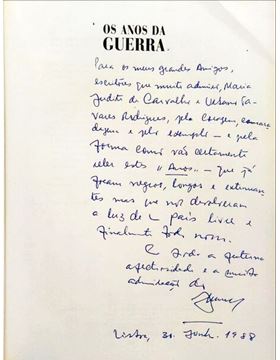 OS ANOS DA
GUERRA
Para os meus grandes Amigos,
escritores que muito admiro, Maria
Judite de Carvalho e Urbano Ta-
vares Rodrigues, pela coragem, camara
dagem e pelo exemplo — e pela
forma como vão certamente
reler estes "Anos" — que já
foram negros, longos e
mas que nos devolveram
a luz de um País livre e
finalmente todo nosso.
E toda a
afectividade e a
admiração do
Lisboa, 30 Junh. 1988